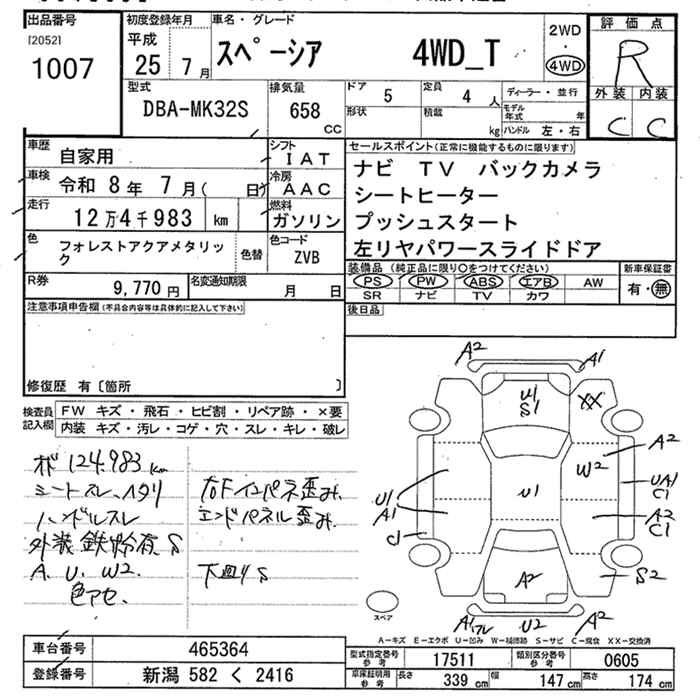 出品番号
[2052]
1007
初度登録年月
平成
25 7月
車名・グレード
スペーシア 4WD_T
2WD
・
4WD
評価点
R
外装 内装
C C
型式
DBA-MK32S
排気量
658
CC
ドア
5
定員
4 人
形状
積載
kg
ディーラー・並行
モデル年式 年
ハンドル 左・右
車歴
自家用
シフト
IAT
車検
令和 8年 7月( 日)
冷房
AAC
走行
12万4千983 km
燃料
ガソリン
色
フォレストアクアメタリック
色替
色コード
ZVB
R券
9,770 円
名変通知期限
月 日
セールスポイント(正常に機能するものに限ります)
ナビ TV バックカメラ
シートヒーター
プッシュスタート
左リヤパワースライドドア
装備品(純正品に限り○をつけてください)
PS PW ABS エアB AW
SR ナビ TV カワ
新車保証書
有・無
後日品
注意事項申告欄(不具合内容等は具体的に記入して下さい)
修復歴 有〔箇所 〕
検査員記入欄
FW キズ・飛石・ヒビ割・リペア跡・×要
内装 キズ・汚レ・コゲ・穴・スレ・キレ・破レ
124.983 km
シートスレ、ハタリ
ハンドルスレ
外装 鉄粉有 S
A. U. W2.
色アセ、
右Fインパネ歪み
エンドパネル歪み
下廻りS
A2
A1
U1
S1
XX
A2
W2
UA1
C1
U1
U1
A1
C1
A2
C1
A2
S2
A1スレ
U2
A2
スペア
A-キズ E-エクボ U-凹み W-補修跡 S-サビ C-腐食 XX-交換済
車台番号
465364
登録番号
新潟 582 く 2416
型式指定番号
参考
17511
類別区分番号
参考
0605
車庫証明用
参考
長さ 339 cm 幅 147 cm 高さ 174 cm